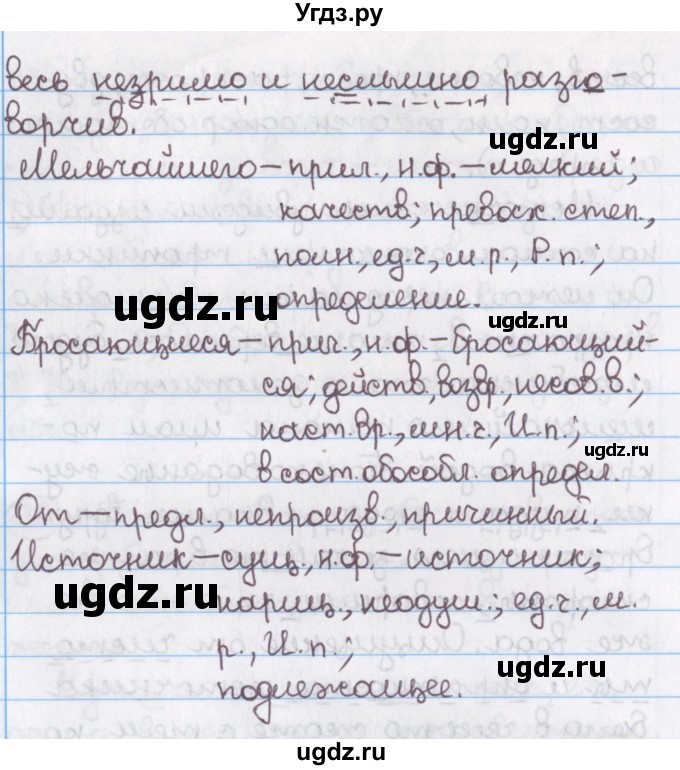 Угдз.ру
весь незримо и неслышно разго-
ворчив.
Мельчайшего – прил., н.ф. – мелкий;
качеств; превосх. степ.,
полн., ед.ч., м.р., Р.п.;
определение.
Бросающиеся – прич., н.ф. – бросающий-
ся; действ, возвр., несов в.;
наст. вр., мн.ч., И.п.;
в сост. обособл. определ.
От – предл., непроизв., причинный.
Источник – сущ., н.ф. – источник;
нариц., неодуш.; ед.ч., м.
р., И.п.;
подлежащее.
ugdz.ru
ugdz.ru
ugdz.ru
ugdz.ru
ugdz.ru
ugdz.ru
ugdz.ru
ugdz.ru